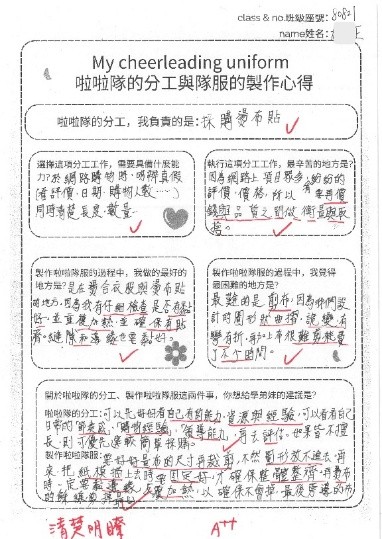 class & no.班級座號: 80821
name姓名:
My cheerleading uniform
啦啦隊的分工與隊服的製作心得
啦啦隊的分工，我負責的是: 採購燙布貼
選擇這項分工工作，需要具備什麼能
力? 於網路購物時，明辨真假
(看評價、日期、購物人數……)
同時清楚長度、數量。
執行這項分工工作，最辛苦的地方是?
因為網路上項目眾多，紛紛的
評價、價格，所以需要再價
錢與品質之間做衡量與取
捨。
製作啦啦隊服的過程中，我做的最好的
地方是? 是在燙合衣服與燙布貼
的地方，因為我有仔細檢查是否有黏
好，並重複加熱，並確保有貼
齊，縫隙和邊緣也要黏好。
製作啦啦隊服的過程中，我覺得
最困難的地方是?
最難的是剪布，因為你們設
計時圖形狀曲折，說變有
彎有折，加上布很難剪，耗費
了不少時間。
關於啦啦隊的分工、製作啦啦隊服這兩件事，你想給學弟妹的建議是?
啦啦隊的分工: 可以先好好看自己有的能力、資源與經驗，可以看看自己
日常的「節奏感」、「購物經驗」、「領導能力」，再去評估。如果皆不擅
長，則可優先選較簡單採購。
製作啦啦隊服: 要好好量布的尺寸再裁剪，不然圖形放不進去，再
來，把紙模描上去時要固定好，才確保整體整齊，再燙布
時一定要輕邊緣，反覆加熱，以確保不會掉，最後旁邊的布
的
清楚明瞭
A++